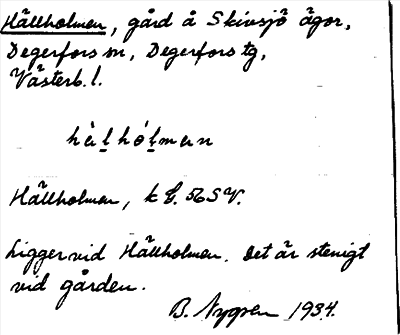 Hällholmen, gård å Skivsjö ägor,
Degerfors sn, Degerfors tg,
Västerb. l.
hàl̠hól̠mɐn
Hällholmen, k bl. 56 SV.
Ligger vid Hällholmen. Det är stenigt
vid gården.
B. Nygren 1934.